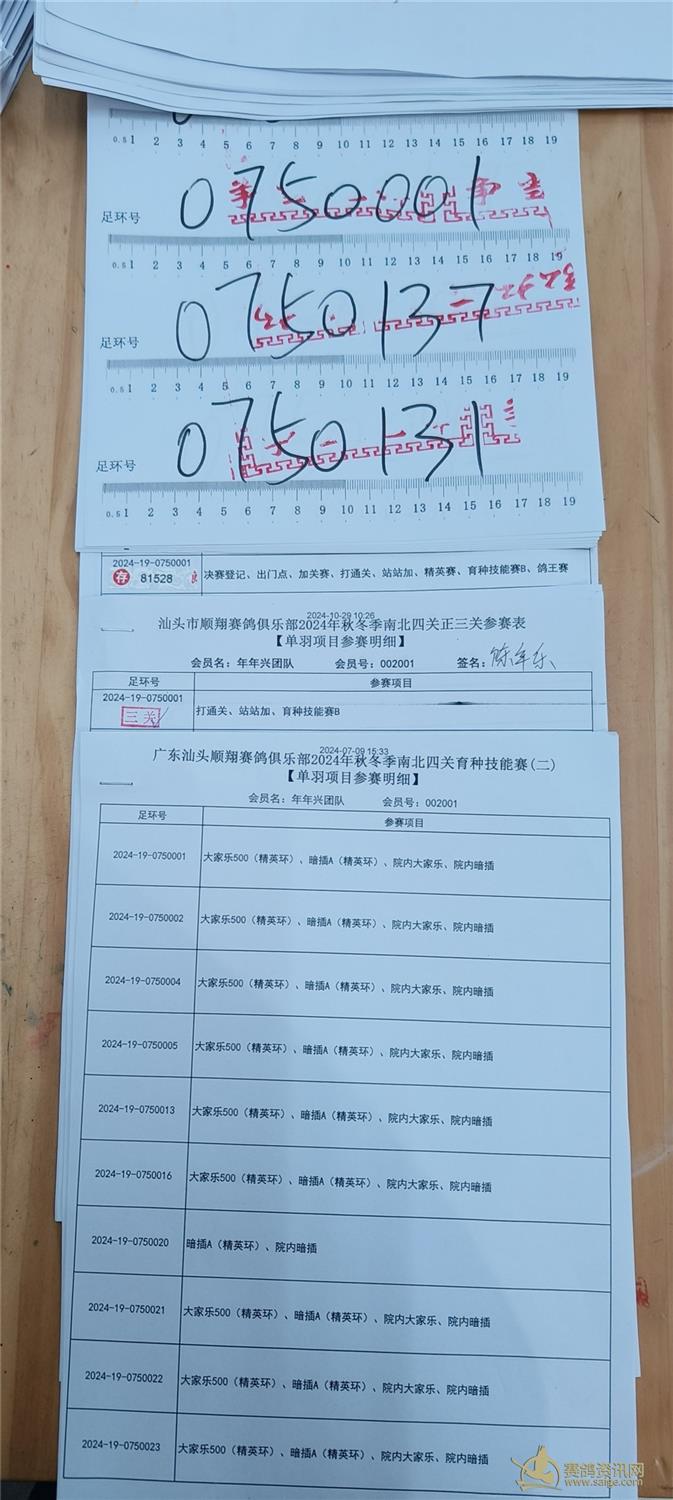 0.5 1 2 3 4 5 6 7 8 9 10 11 12 13 14 15 16 17 18 19
足环号 0750001
0.5 1 2 3 4 5 6 7 8 9 10 11 12 13 14 15 16 17 18 19
足环号 0750137
0.5 1 2 3 4 5 6 7 8 9 10 11 12 13 14 15 16 17 18 19
足环号 0750131
0.5 1 2 3 4 5 6 7 8 9 10 11 12 13 14 15 16 17 18 19
2024-19-0750001
存 81528 决赛登记、出门点、加关赛、打通关、站站加、精英赛、育种技能赛B、鸽王赛
2024-10-29 10:26
汕头市顺翔赛鸽俱乐部2024年秋冬季南北四关正三关参赛表
【单羽项目参赛明细】
会员名：年年兴团队 会员号：002001 签名：
足环号 参赛项目
2024-19-0750001
三关 打通关、站站加、育种技能赛B
2024-07-09 15:33
广东汕头顺翔赛鸽俱乐部2024年秋冬季南北四关育种技能赛(二)
【单羽项目参赛明细】
会员名：年年兴团队 会员号：002001
足环号 参赛项目
2024-19-0750001 大家乐500（精英环）、暗插A（精英环）、院内大家乐、院内暗插
2024-19-0750002 大家乐500（精英环）、暗插A（精英环）、院内大家乐、院内暗插
2024-19-0750004 大家乐500（精英环）、暗插A（精英环）、院内大家乐、院内暗插
2024-19-0750005 大家乐500（精英环）、暗插A（精英环）、院内大家乐、院内暗插
2024-19-0750013 大家乐500（精英环）、暗插A（精英环）、院内大家乐、院内暗插
2024-19-0750016 大家乐500（精英环）、暗插A（精英环）、院内大家乐、院内暗插
2024-19-0750020 暗插A（精英环）、院内暗插
2024-19-0750021 大家乐500（精英环）、暗插A（精英环）、院内大家乐、院内暗插
2024-19-0750022 大家乐500（精英环）、暗插A（精英环）、院内大家乐、院内暗插
2024-19-0750023 大家乐500（精英环）、暗插A（精英环）、院内大家乐、院内暗插
赛鸽资讯网
www.saige.com